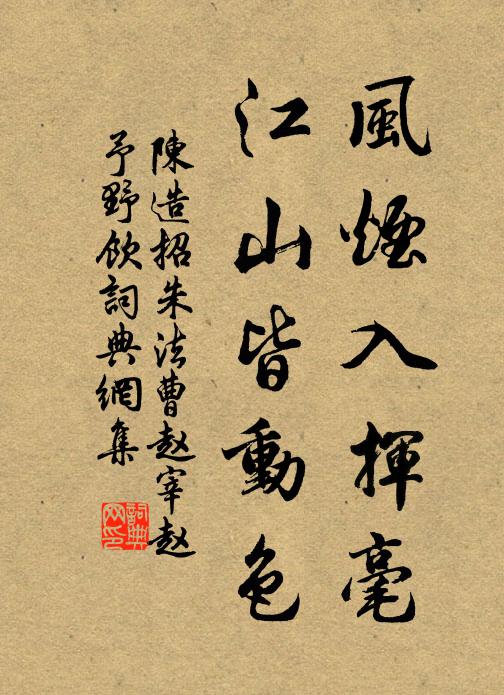 風煙入揮毫
江山皆動色
陳造招朱法曹赵宰赵
予野飲詞典網集
詞典
网印